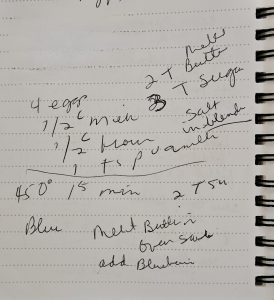 4 eggs
1/2 c milk
1/2 c flour
1 tsp vanilla
2 T melt Butter
3 T Suga
Salt
in blender
450° 15 min
2 T Su
Blue
Melt Butter in
oven
add Blueberri